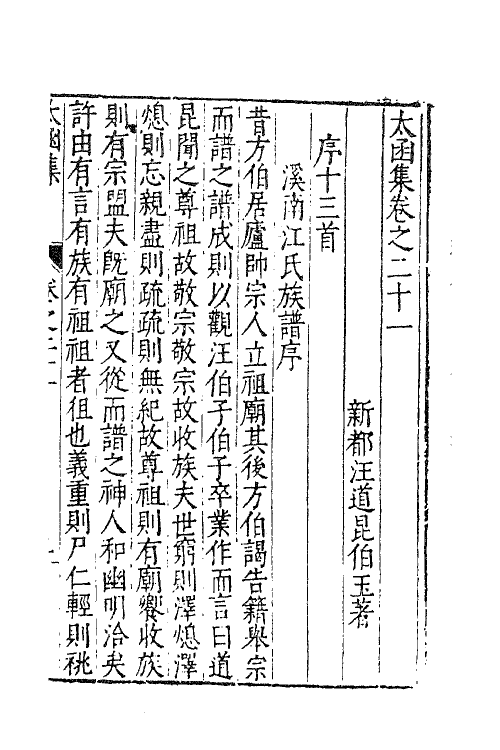 太函集卷之二十一
新都汪道昆伯玉著
序十三首
溪南江氏族譜序
昔方伯居廬帥宗人立祖廟其後方伯謁告籍舉宗
而譜之譜成則以觀汪伯子伯子卒業作而言曰道
昆聞之尊祖故敬宗敬宗故收族夫世窮則澤熄澤
熄則忘親盡則疏疏則無紀故尊祖則有廟饗收族
則有宗盟夫既廟之又從而譜之神人和幽明洽矣
許由有言有族有祖祖者徂也義重則尸仁輕則祧
太函集
卷之二十一
一